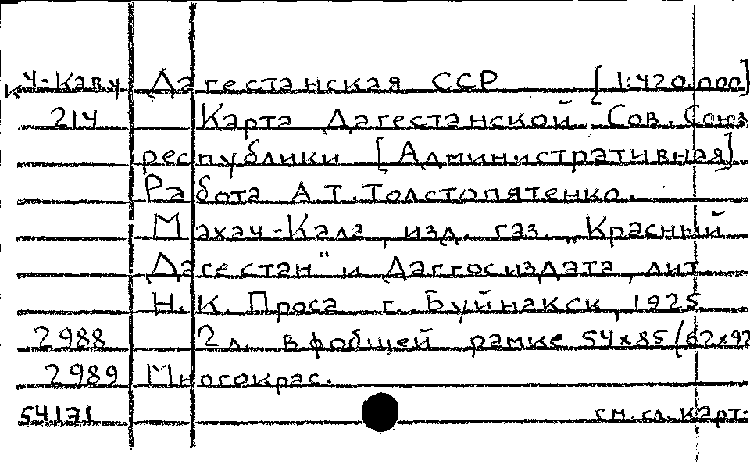 К У-Кавк Дагестанская ССР [1:420.000]
214 Карта Дагестанской Сов. Союз
республики [Административная]
Работа А.Т.Толстопятенко.
Махач-Кала, изд. газ. „Красный
Дагестан" и Даггосиздата, лит.
Н.К. Проса г. Буйнакск, 1925
2988 2 л. в общей рамке 54x85/62x92
2989 Многокрас.
54171 см. сл. карт.